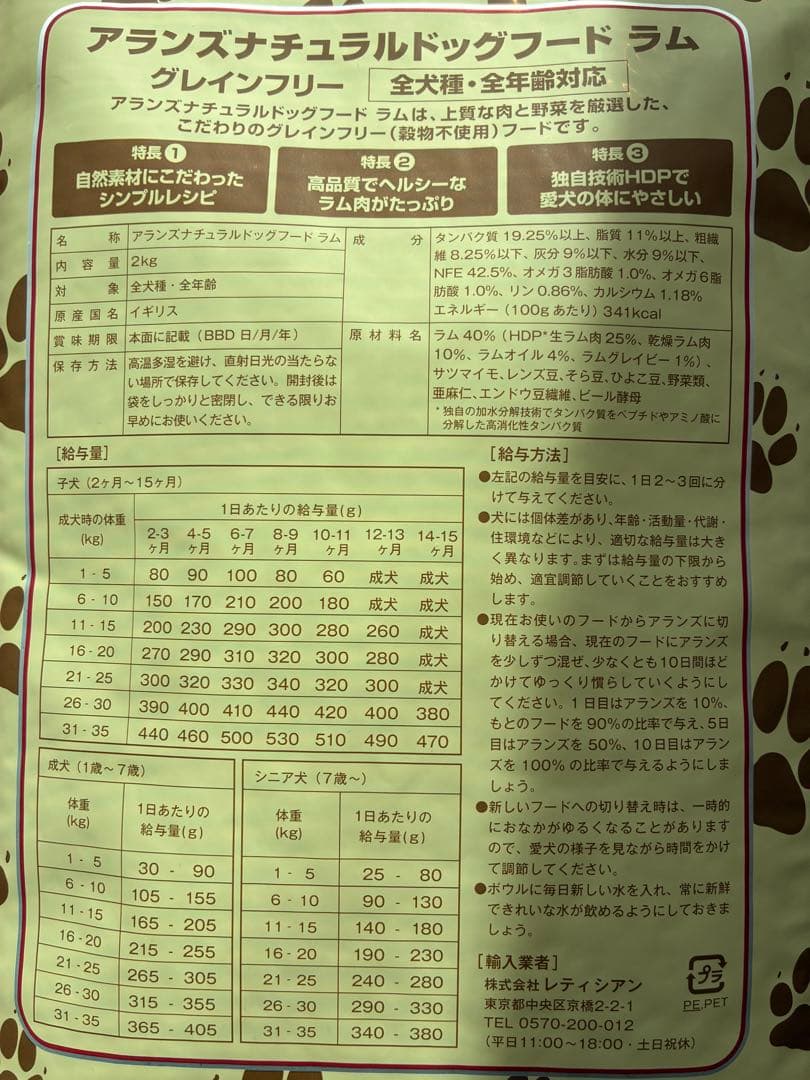 アランズナチュラルドッグフード ラム
グレインフリー 全犬種・全年齢対応
アランズナチュラルドッグフード ラムは、上質な肉と野菜を厳選した、
こだわりのグレインフリー(穀物不使用)フードです。
特長①
自然素材にこだわった
シンプルレシピ
特長②
高品質でヘルシーな
ラム肉がたっぷり
特長③
独自技術HDPで
愛犬の体にやさしい
名称 アランズナチュラルドッグフード ラム
内容量 2kg
対象 全犬種・全年齢
原産国名 イギリス
賞味期限 本面に記載(BBD 日/月/年)
保存方法 高温多湿を避け、直射日光の当たらな
い場所で保存してください。開封後は
袋をしっかりと密閉し、できる限りお
早めにお使いください。
成分 タンパク質 19.25%以上、脂質 11%以上、粗繊
維 8.25%以下、灰分 9%以下、水分 9%以下、
NFE 42.5%、オメガ3脂肪酸 1.0%、オメガ6脂
肪酸 1.0%、リン 0.86%、カルシウム 1.18%
エネルギー(100gあたり)341kcal
原材料名 ラム 40%(HDP*生ラム肉 25%、乾燥ラム肉
10%、ラムオイル 4%、ラムグレイビー 1%)、
サツマイモ、レンズ豆、そら豆、ひよこ豆、野菜類、
亜麻仁、エンドウ豆繊維、ビール酵母
*独自の加水分解技術でタンパク質をペプチドやアミノ酸に
分解した高消化性タンパク質
[給与量]
子犬(2ヶ月〜15ヶ月)
成犬時の体重
(kg)
1日あたりの給与量(g)
2-3ヶ月 4-5ヶ月 6-7ヶ月 8-9ヶ月 10-11ヶ月 12-13ヶ月 14-15ヶ月
1 - 5 80 90 100 80 60 成犬 成犬
6 - 10 150 170 210 200 180 成犬 成犬
11 - 15 200 230 290 300 280 260 成犬
16 - 20 270 290 310 320 300 280 成犬
21 - 25 300 320 330 340 320 300 成犬
26 - 30 390 400 410 440 420 400 380
31 - 35 440 460 500 530 510 490 470
成犬(1歳〜7歳)
体重
(kg)
1日あたりの
給与量(g)
1 - 5 30 - 90
6 - 10 105 - 155
11 - 15 165 - 205
16 - 20 215 - 255
21 - 25 265 - 305
26 - 30 315 - 355
31 - 35 365 - 405
シニア犬(7歳〜)
体重
(kg)
1日あたりの
給与量(g)
1 - 5 25 - 80
6 - 10 90 - 130
11 - 15 140 - 180
16 - 20 190 - 230
21 - 25 240 - 280
26 - 30 290 - 330
31 - 35 340 - 380
[給与方法]
●左記の給与量を目安に、1日2〜3回に分
けて与えてください。
●犬には個体差があり、年齢・活動量・代謝・
住環境などにより、適切な給与量は大き
く異なります。まずは給与量の下限から
始め、適宜調節していくことをおすすめ
します。
●現在お使いのフードからアランズに切
り替える場合、現在のフードにアランズ
を少しずつ混ぜ、少なくとも10日間ほど
かけてゆっくり慣らしていくようにし
てください。1日目はアランズを10%、
もとのフードを90%の比率で与え、5日
目はアランズを50%、10日目はアラン
ズを100%の比率で与えるようにしま
しょう。
●新しいフードへの切り替え時は、一時的
におなかがゆるくなることがあります
ので、愛犬の様子を見ながら時間をかけ
て調節してください。
●ボウルに毎日新しい水を入れ、常に新鮮
できれいな水が飲めるようにしておきま
しょう。
[輸入業者]
株式会社 レティシアン
東京都中央区京橋2-2-1
TEL 0570-200-012
(平日11:00〜18:00・土日祝休)
プラ
PE,PET